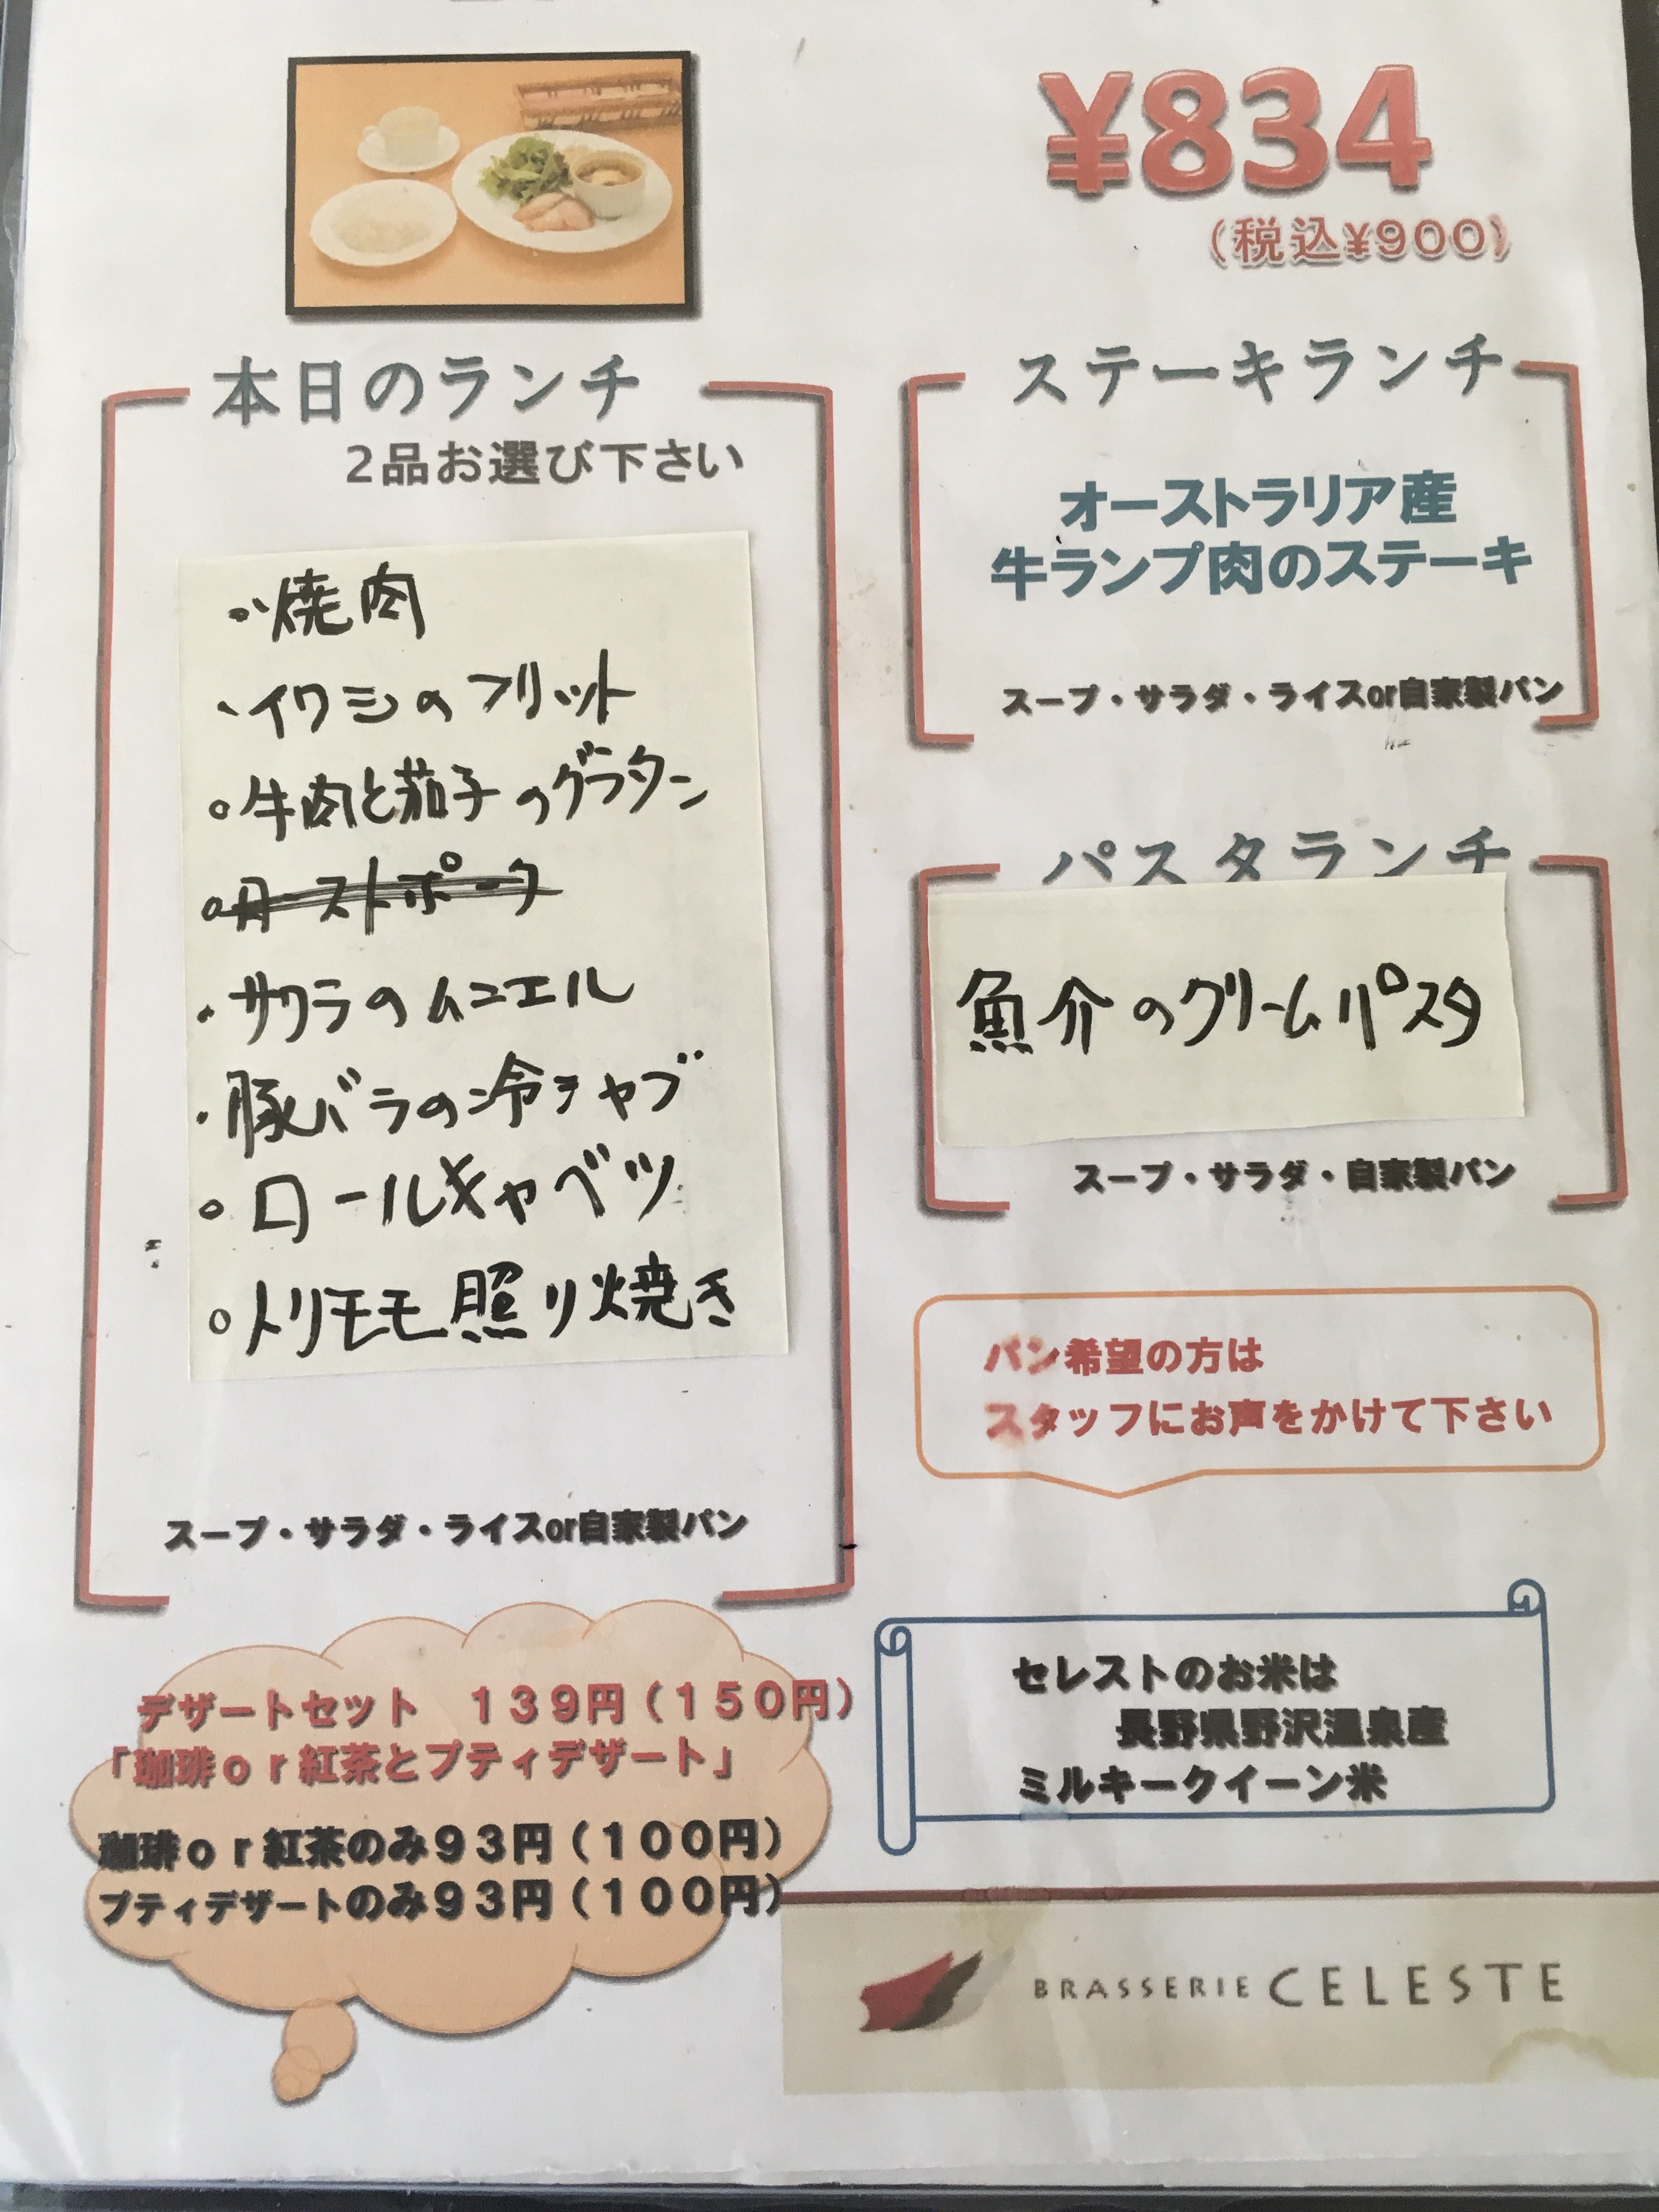 ¥834
(税込¥900)
本日のランチ
2品お選び下さい
・焼肉
・イワシのフリット
・牛肉と茄子のグラタン
・ローストポーク
・サワラのムニエル
・豚バラの冷シャブ
・ロールキャベツ
・トリモモ照り焼き
スープ・サラダ・ライスor自家製パン
ステーキランチ
オーストラリア産
牛ランプ肉のステーキ
スープ・サラダ・ライスor自家製パン
パスタランチ
魚介のクリームパスタ
スープ・サラダ・自家製パン
パン希望の方は
スタッフにお声をかけて下さい
デザートセット　139円(150円)
「珈琲or紅茶とプティデザート」
珈琲or紅茶のみ93円(100円)
プティデザートのみ93円(100円)
セレストのお米は
長野県野沢温泉産
ミルキークイーン米
BRASSERIE CELESTE